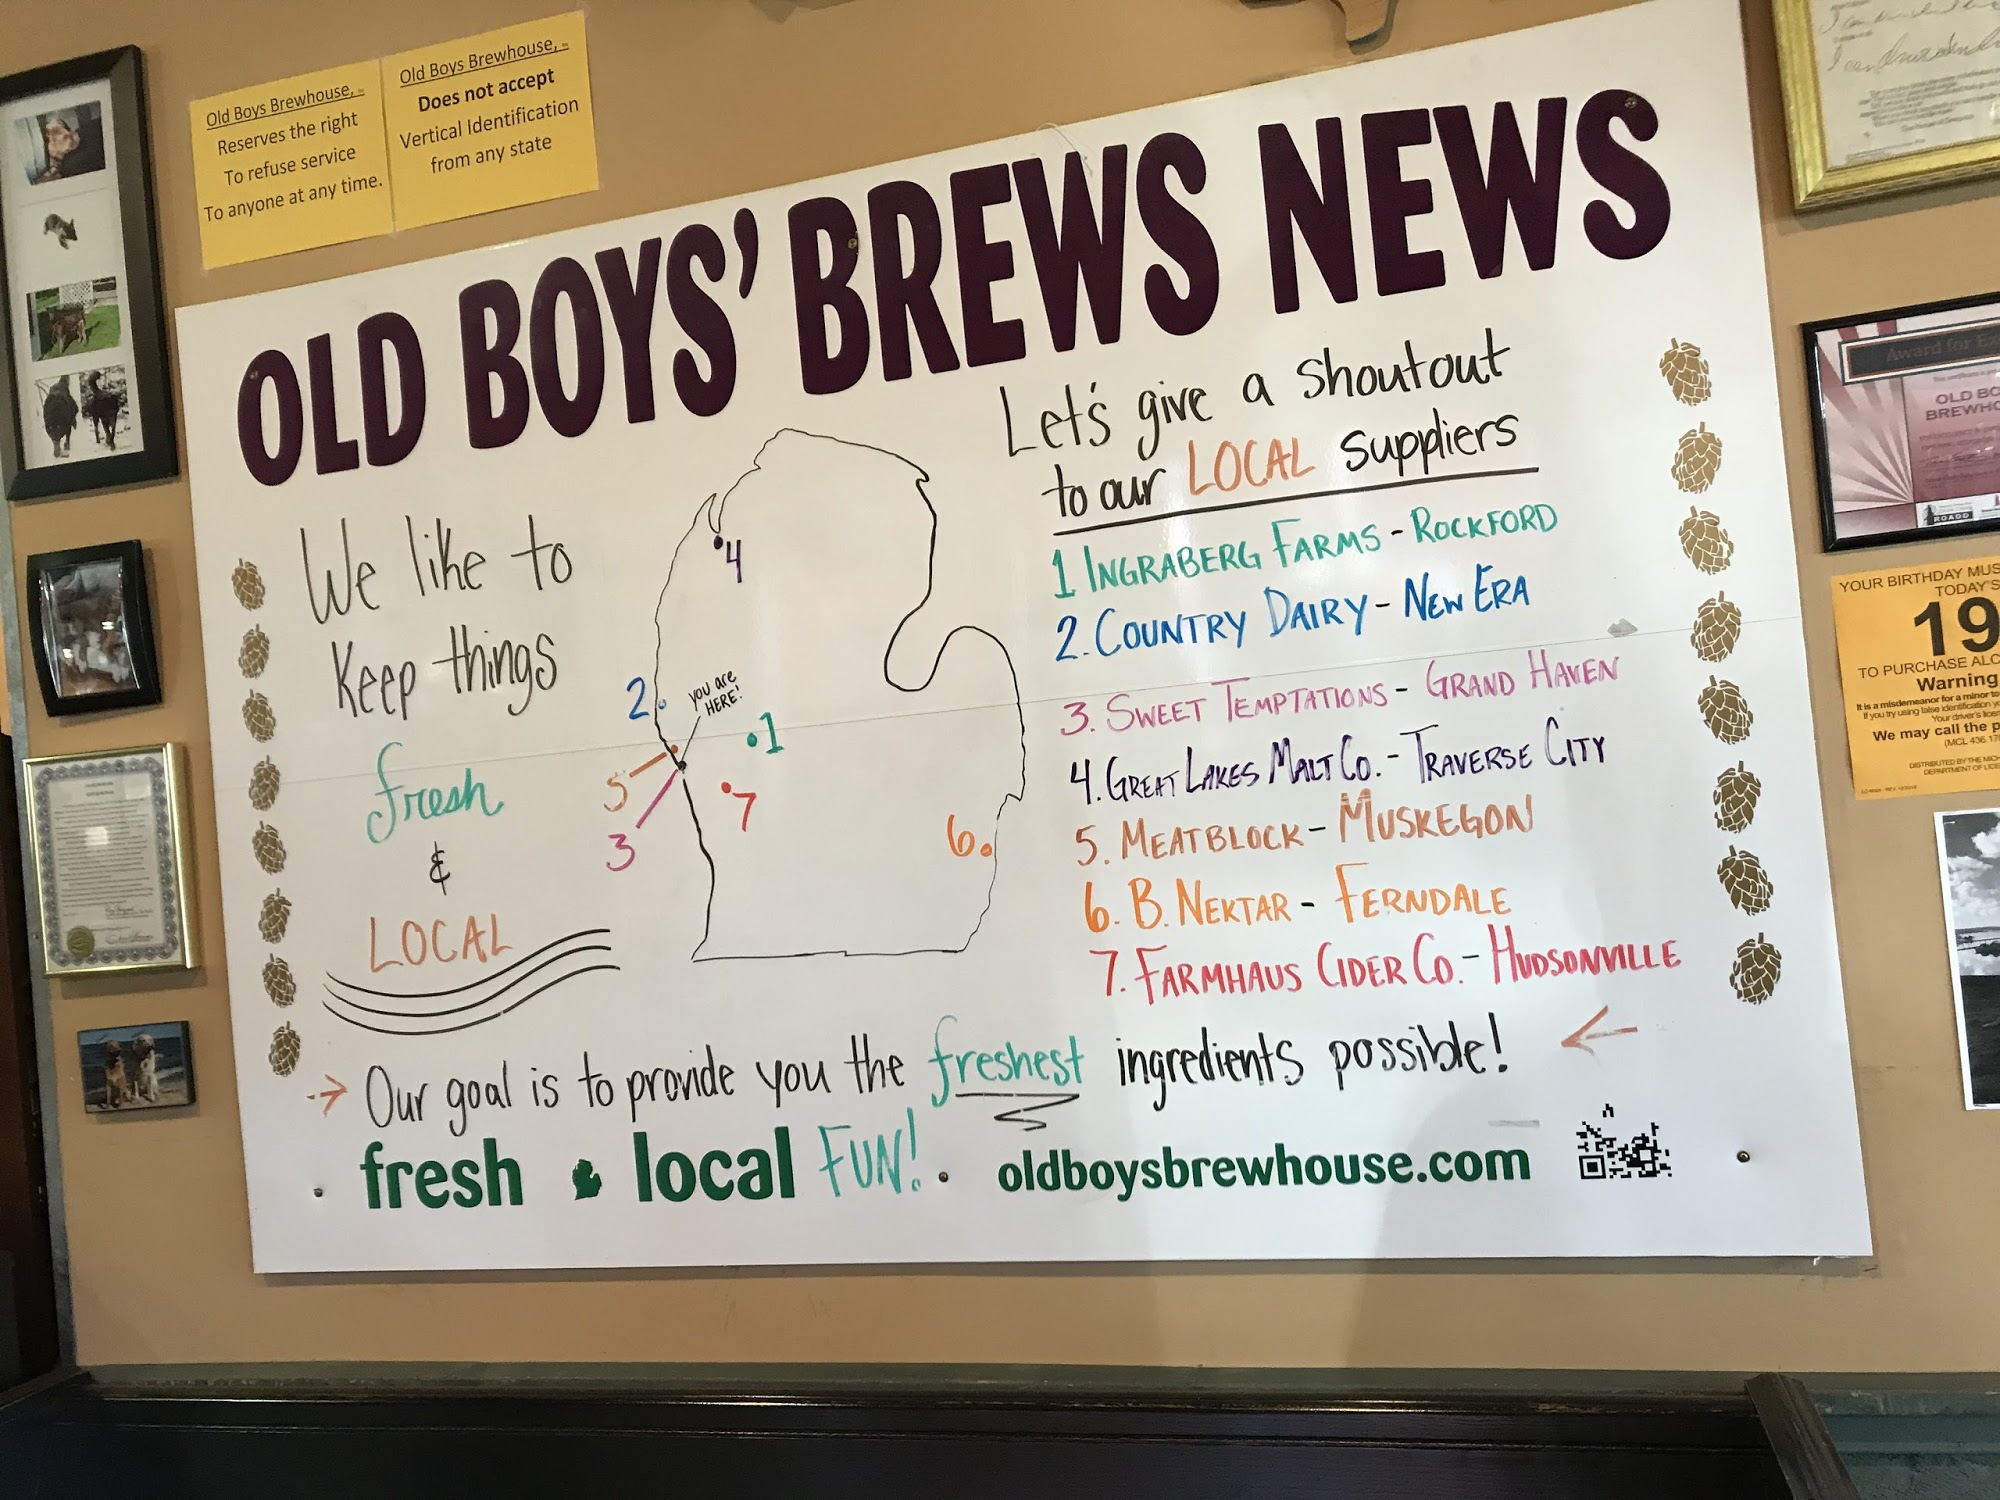 Old Boys Brewhouse,
Reserves the right
To refuse service
To anyone at any time.
Old Boys Brewhouse,
Does not accept
Vertical Identification
from any state
OLD BOYS' BREWS NEWS
We like to
Keep things
fresh
&
LOCAL
4
2
you are
HERE!
1
5
7
3
6
Let's give a shoutout
to our LOCAL suppliers
1 INGRABERG FARMS - ROCKFORD
2. COUNTRY DAIRY - NEW ERA
3. SWEET TEMPTATIONS - GRAND HAVEN
4. GREAT LAKES MALT CO. - TRAVERSE CITY
5. MEATBLOCK - MUSKEGON
6. B. NEKTAR - FERNDALE
7. FARMHAUS CIDER CO. - HUDSONVILLE
Our goal is to provide you the freshest ingredients possible!
fresh local FUN! oldboysbrewhouse.com
Award for
OLD BO
BREWHO
ROADD
YOUR BIRTHDAY MUS
TODAY'S
19
TO PURCHASE ALC
Warning
It is a misdemeanor for a minor to
If you try using false identification
Your driver's
We may call the p
(MCL 436.17
DISTRIBUTED BY THE MICH
DEPARTMENT OF LICE